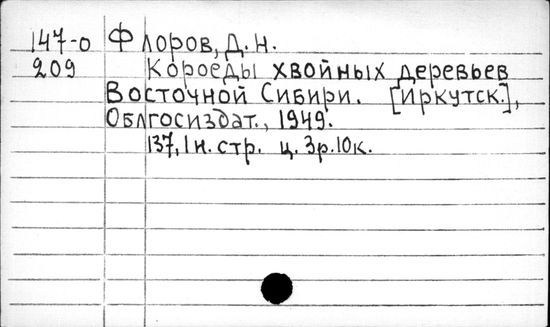 147-о Флоров, Д.Н.
209 Короеды хвойных деревьев
Восточной Сибири. [Иркутск.],
Облгосиздат., 1949.
137,1 н. стр. ц. 3р.10к.